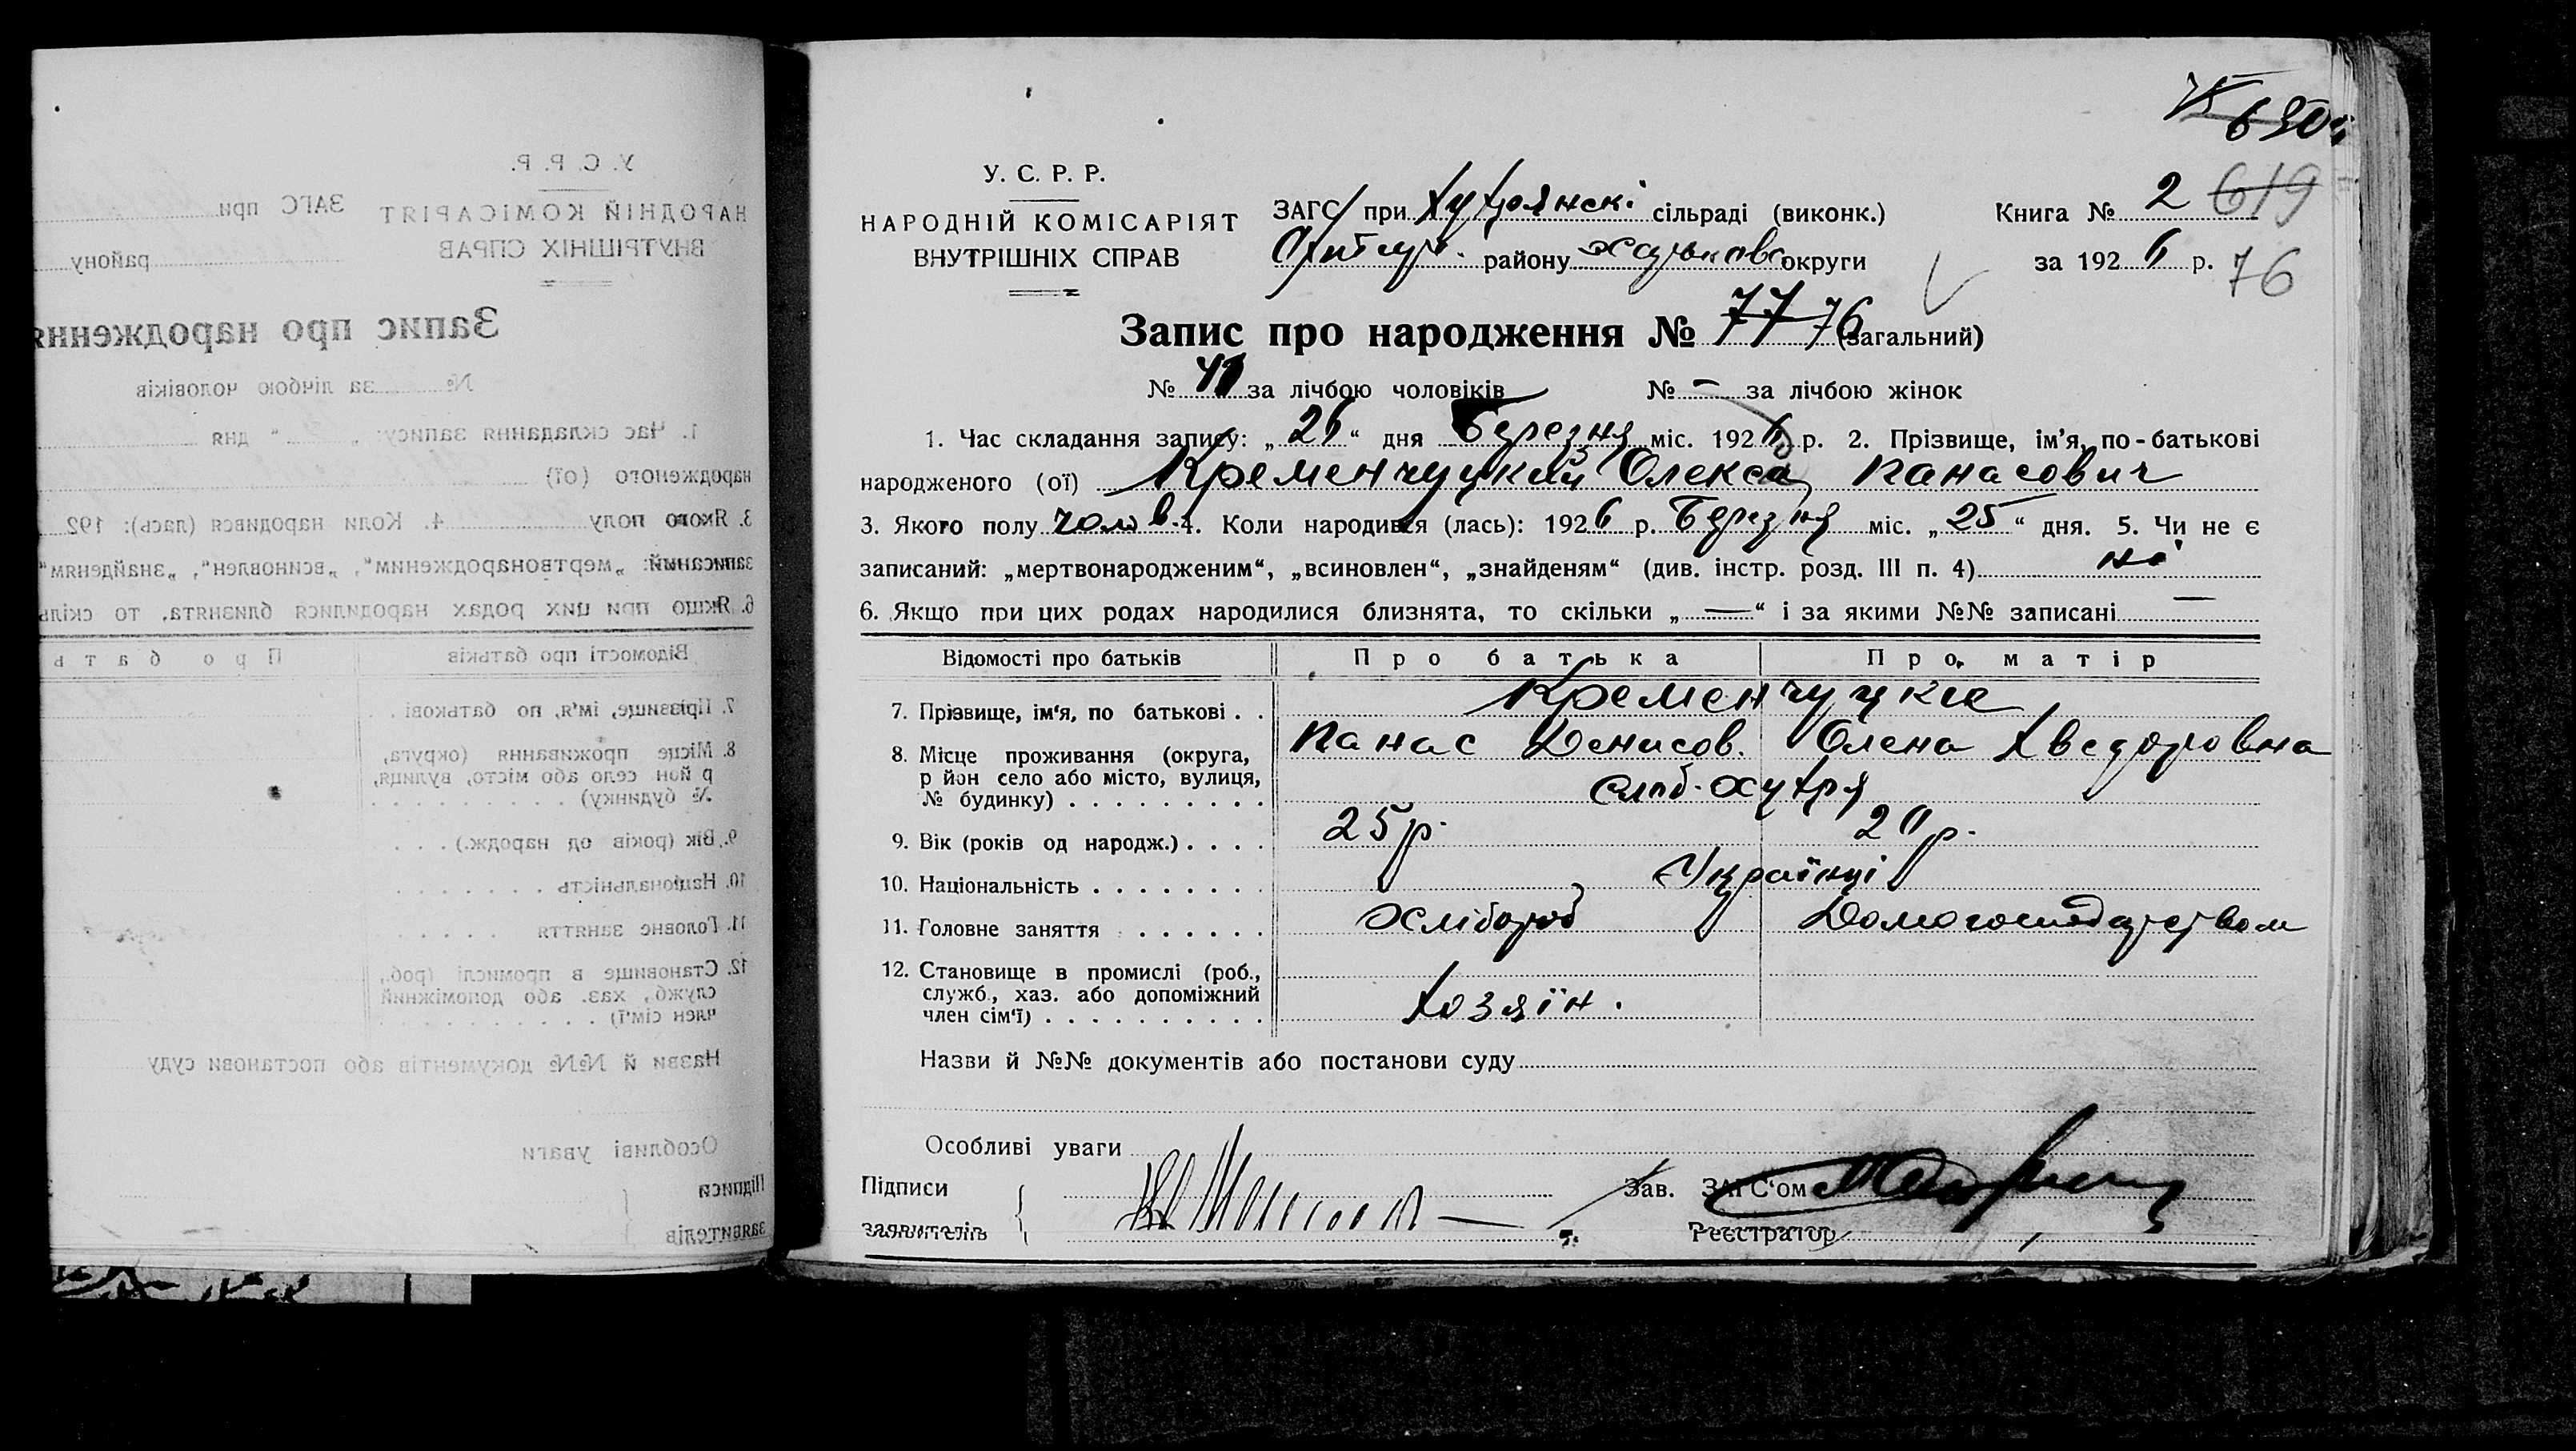 У. С. Р. Р.
НАРОДНІЙ КОМІСАРІЯТ
ВНУТРІШНІХ СПРАВ
ЗАГС при
району
Запис про народження
№ за лічбою чоловіків
1. Час складання запису: „ “ дня
народженого (ої)
3. Якого полу 4. Коли народився (лась): 192
записаный: „мертвонародженим“, „всиновлен“, „знайденям“
6. Якщо при цих родах народилися близнята, то скіль
Відомості про батьків Про бать
7. Прізвище, ім'я, по батькові . .
8. Місце проживання (округа,
р йон село або місто, вулиця,
№ будинку) . . . . . . . . .
9. Вік (років од народж.) . . .
10. Національність . . . . . . .
11. Головне заняття . . . . .
12. Становище в промислі (роб.,
служб., хаз. або допоміжний
член сім'ї) . . . . . . . . . .
Назви й №№ документів або постанови суду
Особливі уваги
Підписи
заявителів
У. С. Р. Р.
НАРОДНІЙ КОМІСАРІЯТ
ВНУТРІШНІХ СПРАВ
ЗАГС при Хутрянскі сільраді (виконк.)
району Харьковс округи
Книга № 2 619
за 192 6 р. 76
Запис про народження № 77 76 (загальний)
№ за лічбою чоловіків № – за лічбою жінок
1. Час складання запису: „ 26 “ дня Березня міс. 192 6 р. 2. Прізвище, ім'я, по-батькові
народженого (ої) Кременчуцкий Олекса Панасович
3. Якого полу чолов. 4. Коли народився (лась): 192 6 р. Березня міс. „ 25 “ дня. 5. Чи не є
записаний: „мертвонародженим“, „всиновлен“, „знайденям“ (див. інстр. розд. III п. 4) ні
6. Якщо при цих родах народилися близнята, то скільки „ — “ і за якими №№ записані —
Відомості про батьків Про батька Про матір
7. Прізвище, ім'я, по батькові . . Кременчуцкіе
Панас Денисов. Олена Хведоровна
8. Місце проживання (округа,
р йон село або місто, вулиця,
№ будинку) . . . . . . . . . слоб. Хутря
9. Вік (років од народж.) . . . . 25 р. 20 р.
10. Національність . . . . . . . . Українці
11. Головне заняття . . . . . . Хлібороб Домогосподарством
12. Становище в промислі (роб.,
служб., хаз. або допоміжний
член сім'ї) . . . . . . . . . . Хозяїн.
Назви й №№ документів або постанови суду
Особливі уваги
Підписи
заявителів
Зав. ЗАГС'ом
Реєстратор